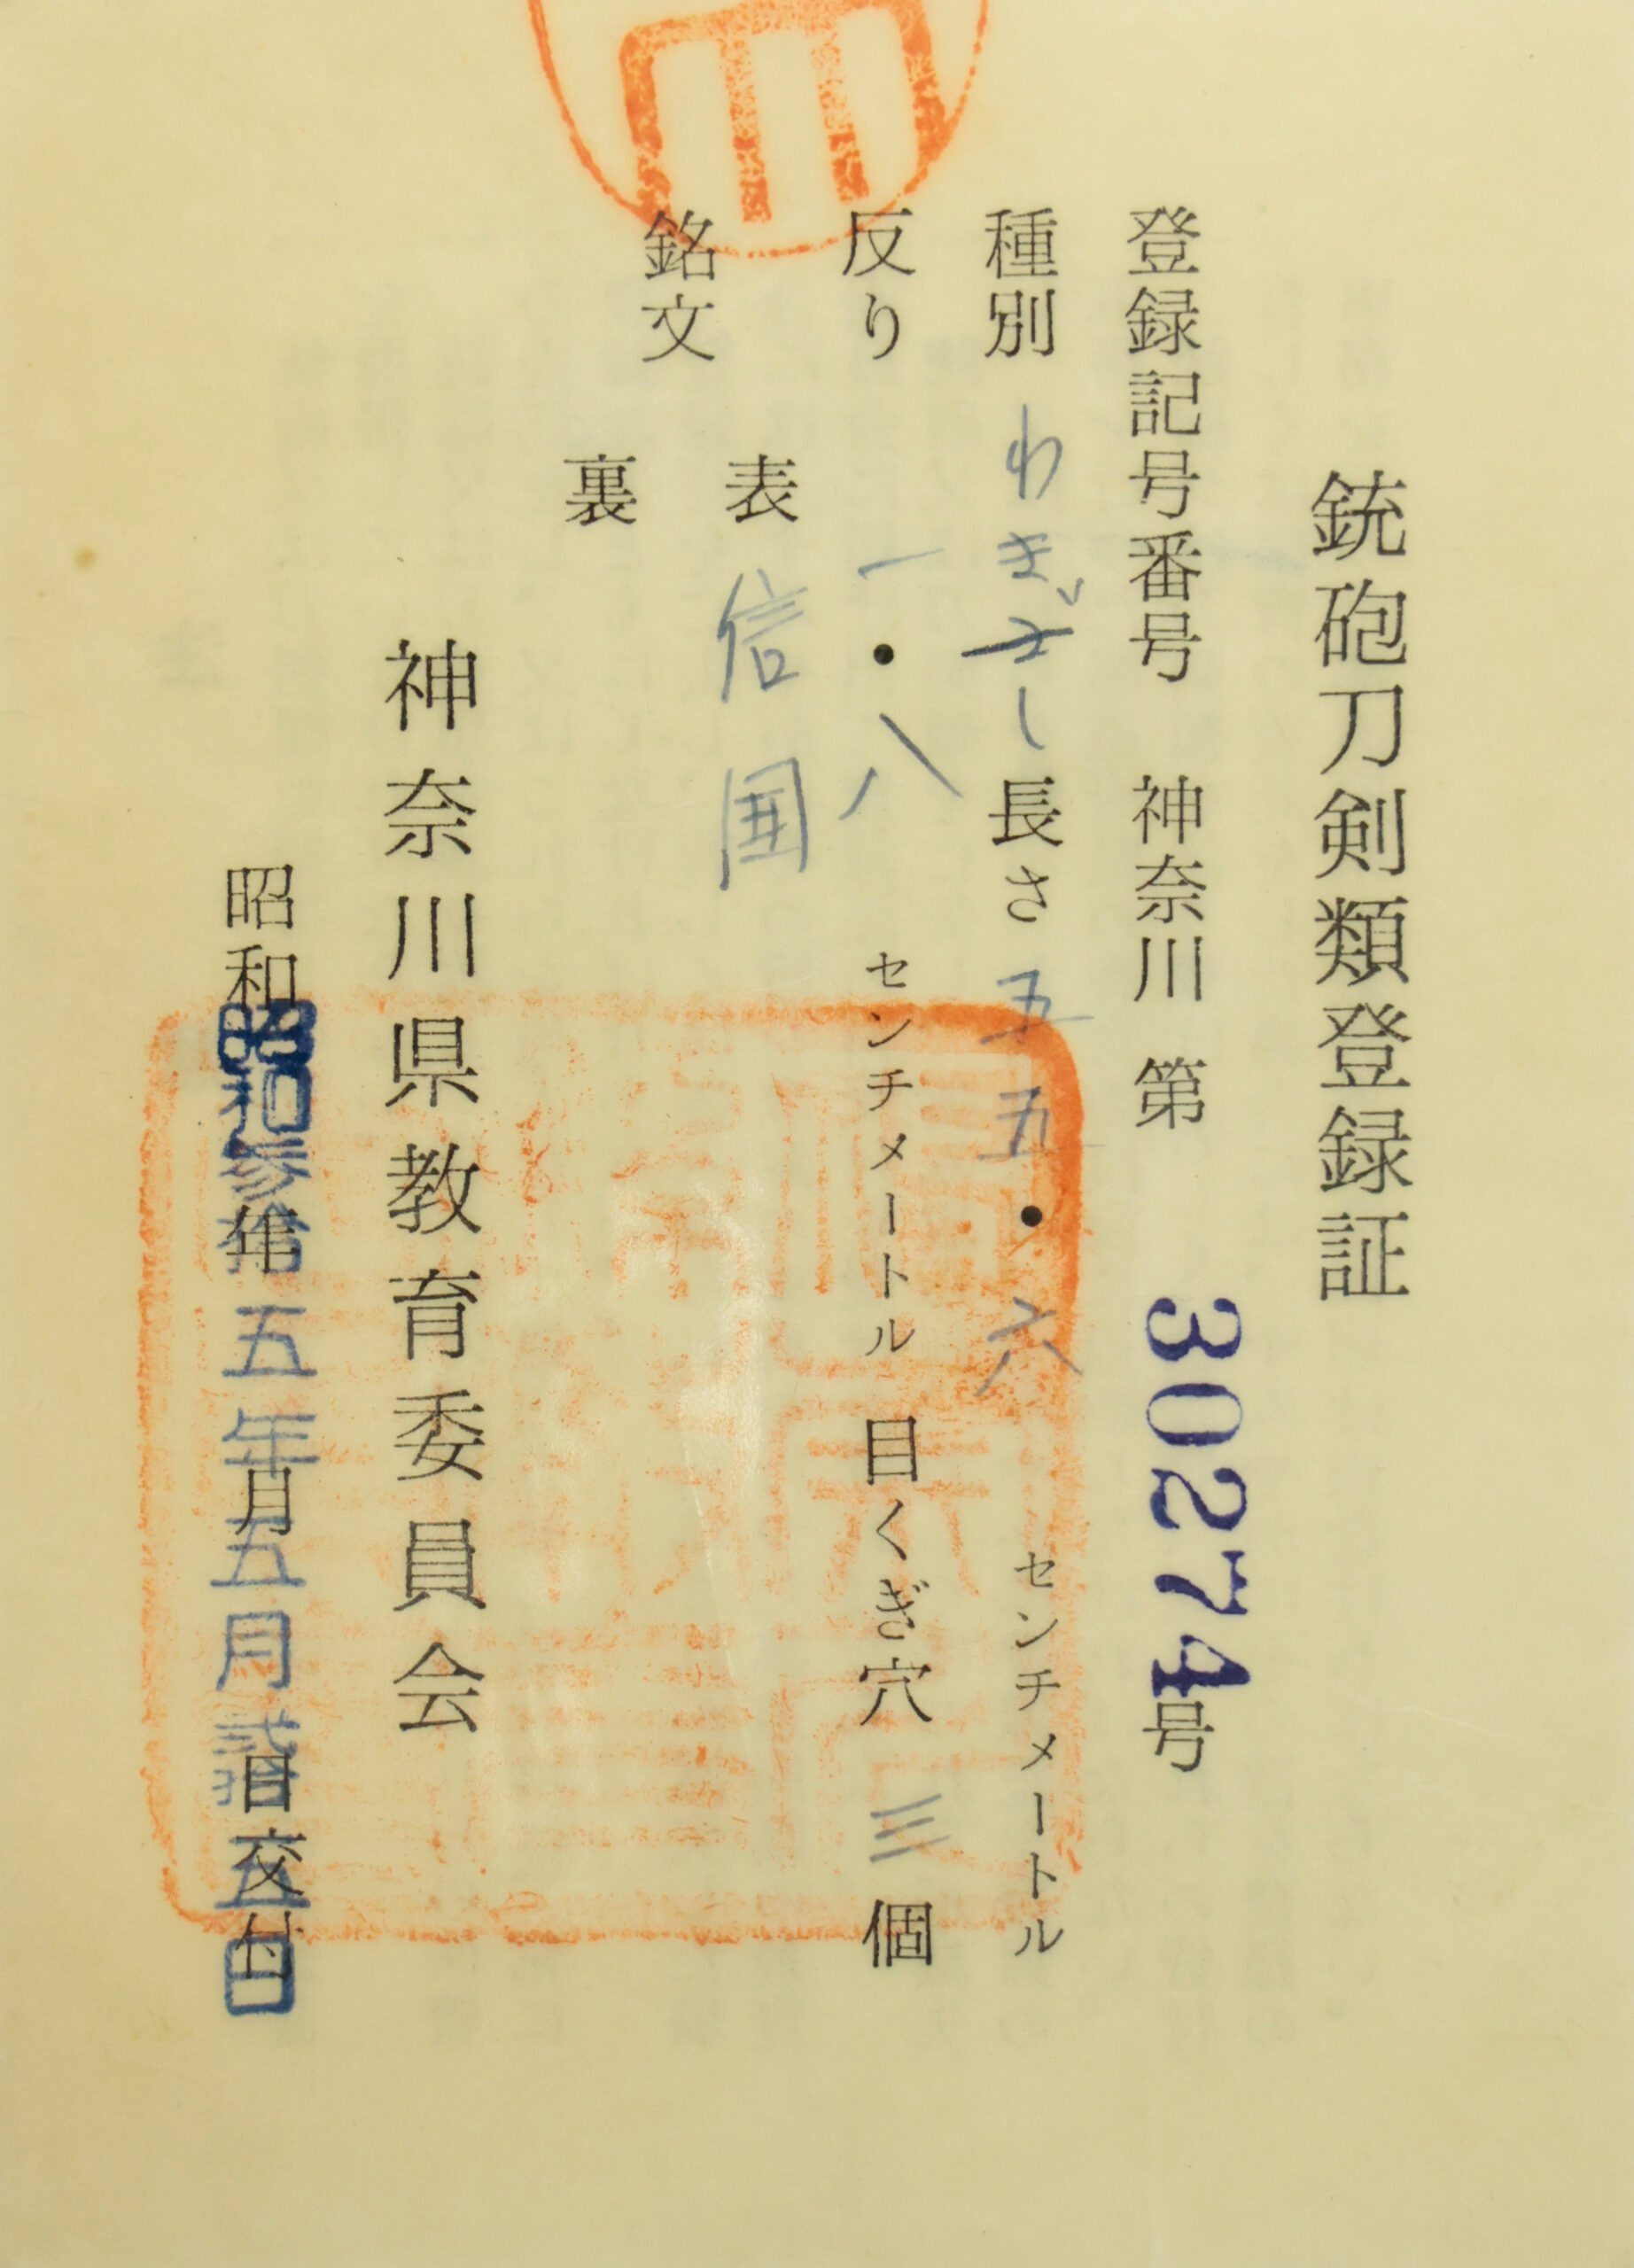 銃砲刀剣類登録証
登録記号番号 神奈川 第 30274号
種別 わきざし 長さ 五五・六 センチメートル
反り 一・八 センチメートル 目くぎ穴 三 個
銘文
表 信国
裏
神奈川県教育委員会
昭和 年 月 日交付
昭和参拾五年五月弐拾五日